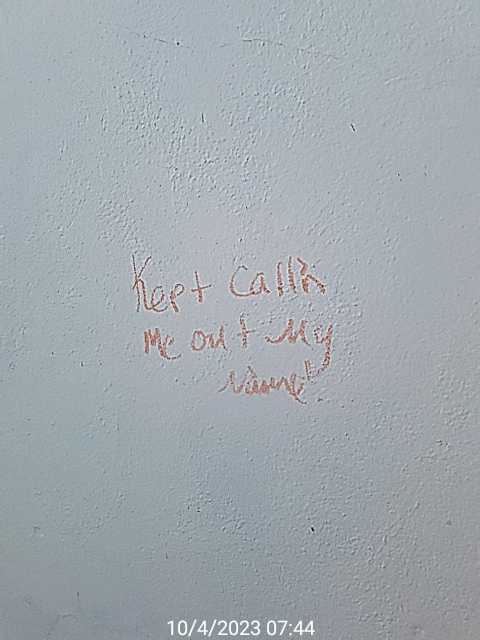 Kept Callin
Me out My
Name!
10/4/2023 07:44